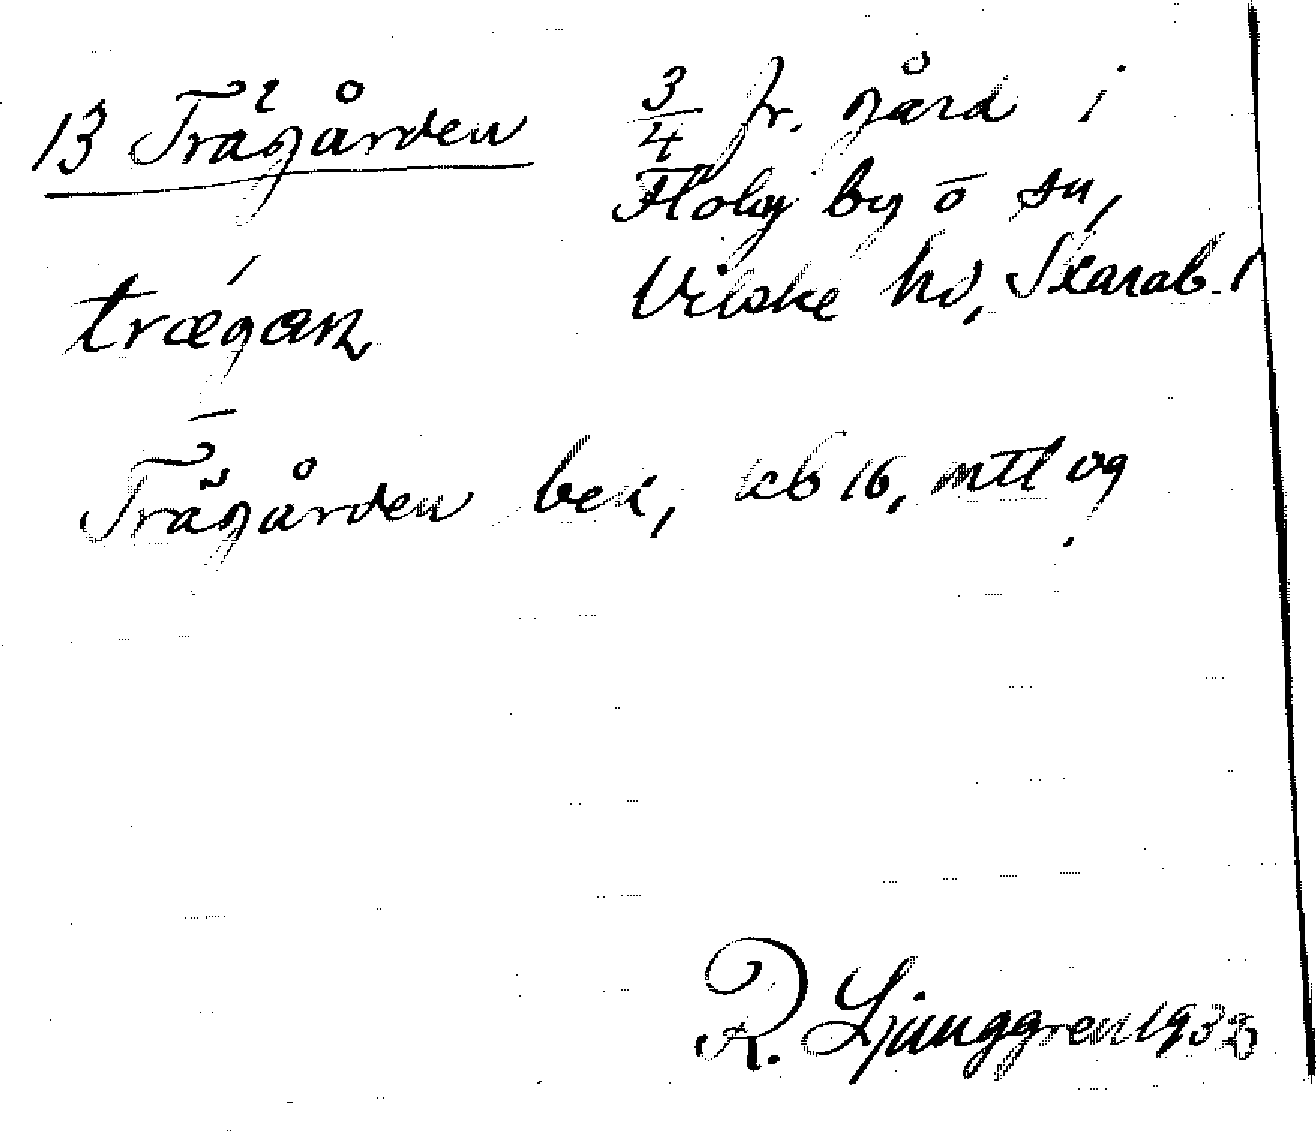 13 Trägården
3/4 fr. gård i
Floby by o sn,
Vilske hd, Skarab. l
trægan
Trägården bek, kb 16, mtl og
R. Ljunggren 1932